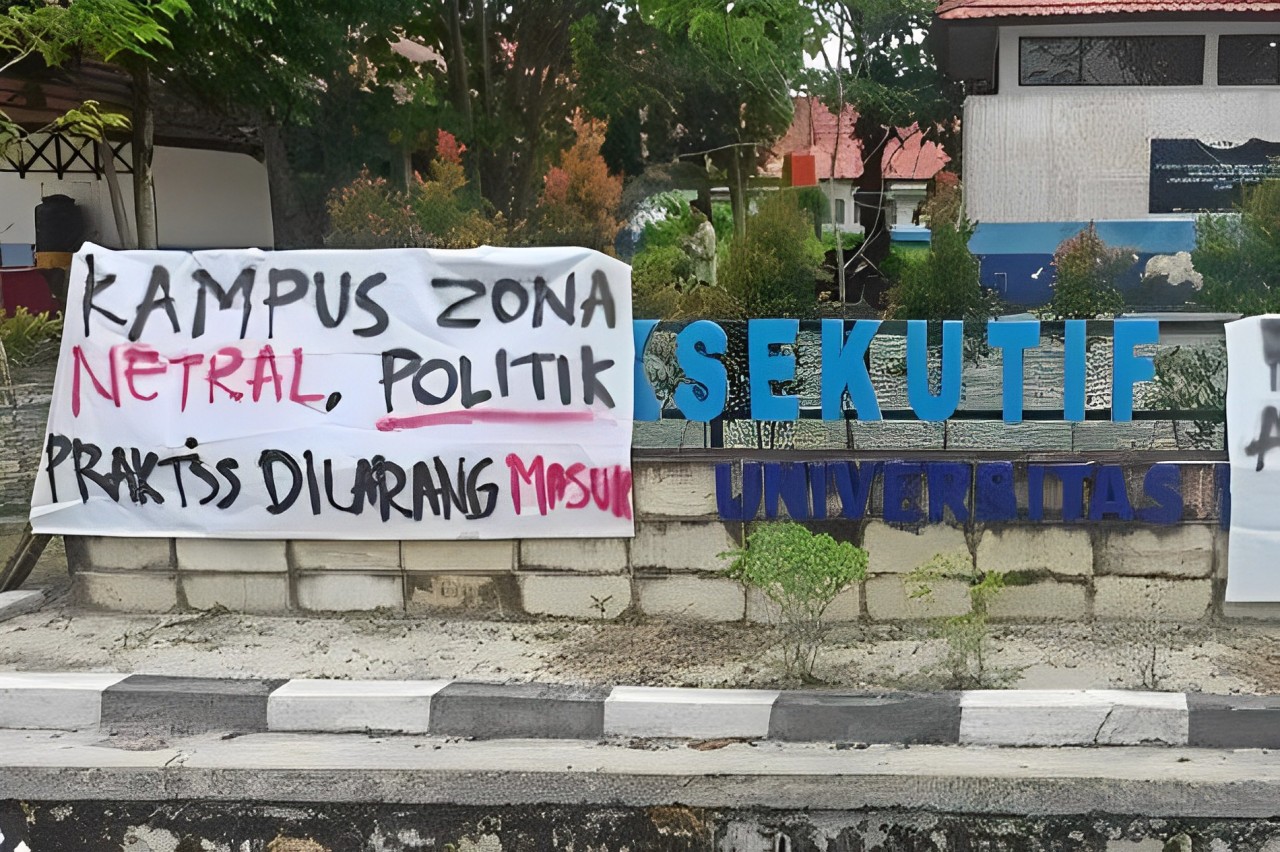 KAMPUS ZONA
NETRAL, POLITIK
PRAKTISS DILARANG MASUK
KSEKUTIF
UNIVERSITAS